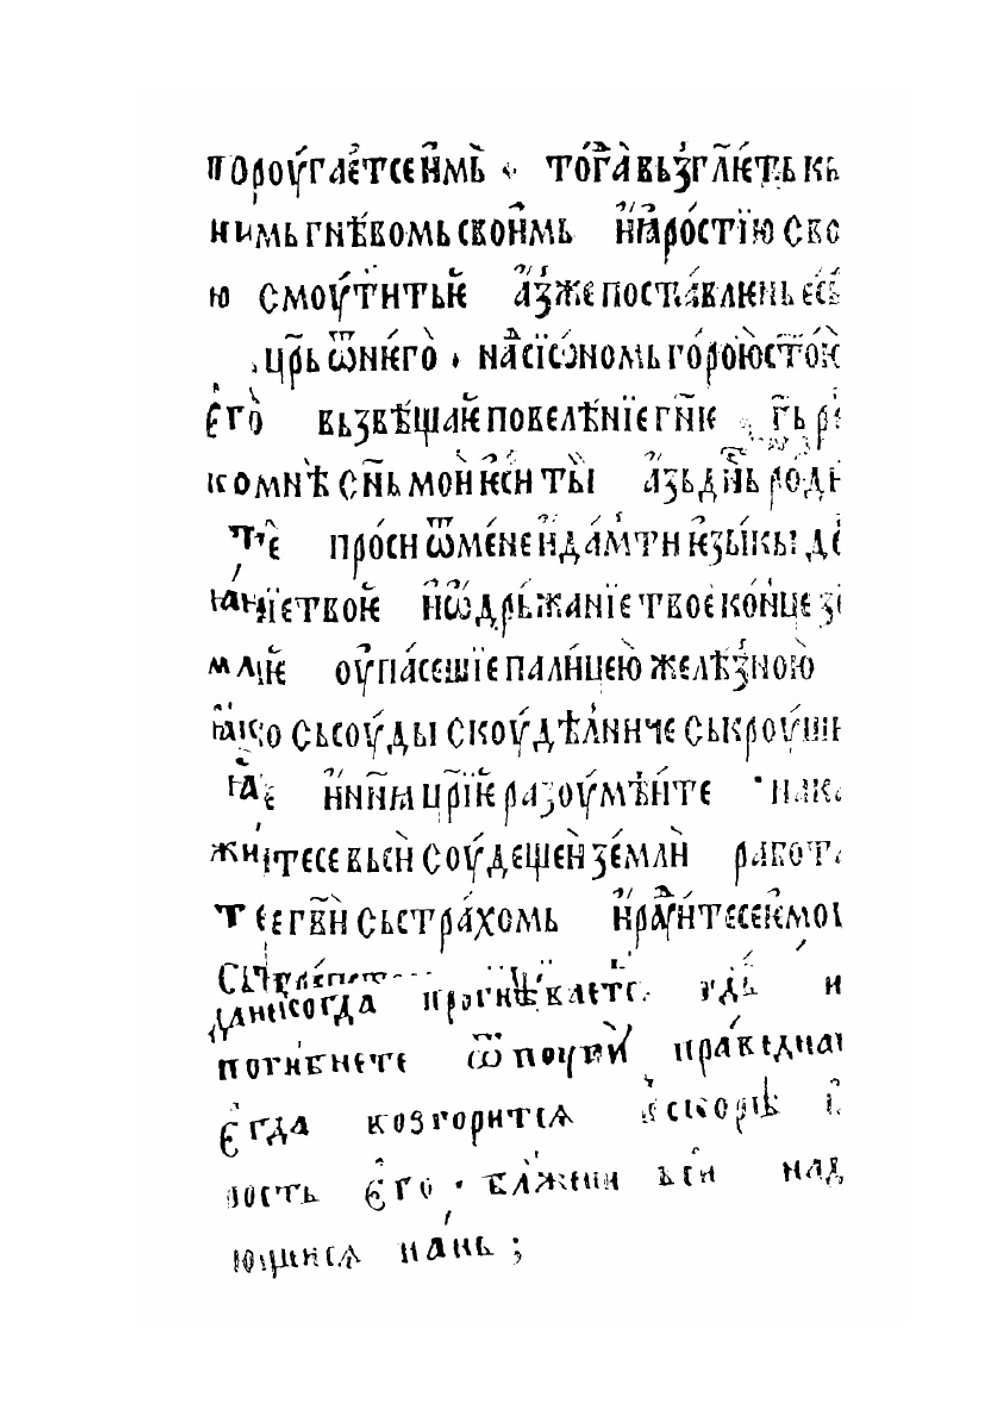 пороу́гае҆тсеи҆мь̀ · то́гда̀вьз҆гл҃ѥ́ть кь
нимьгнѣ́вомьсвои҆мь и҆ꙗ҆ро́стїю сво
ю смоу́титьѥ҆ а҆́з҆жепоста́влѥньѥс
цр҃ь ѿнѥ́го̀ · насїѡ́номьго́рою҆ст҃о́ю
ѥ҆го̀ вьзвѣ́щаѥ҆повелѣ́нїегн҃ѥ гь҃ ре
комнѣ сн҃ьмои҆ѥ҆си ты̀ а҆́зьдн҃ьсь ро́ди
те̏ про́си ѿме́не и҆да́м҆ти ѥ҆зы́кы до́
ꙗ́нїетвоѥ҆ и҆ѡ҆дрь́жанїе твоѐко́н҆це зе
млїѥ҆ оу҆па́сешїепали́цею̀ желѣ́з҆ною̀
ꙗ҆́ко сьсоу́ды скоу́дѣ́лниче ськроу́ши
ꙗ҆̀е и҆нн҃ꙗ цр҃їѥ҆ разоу́мѣ́ите нака
жи́тесе вьсѝ соу́дещеѝ зе́млѝ работа
те гв҃ѝ сьстра́хомь и҆ра́дꙋитесеѥ҆моу
данекогда прогнѣ́ваетс гдь и
погибнете ѿ поути праведна
ѥ҆гда возгорится вскорѣ ꙗ
рость ѥ҆го · бла҃жени вси над
ющися на́нь ;